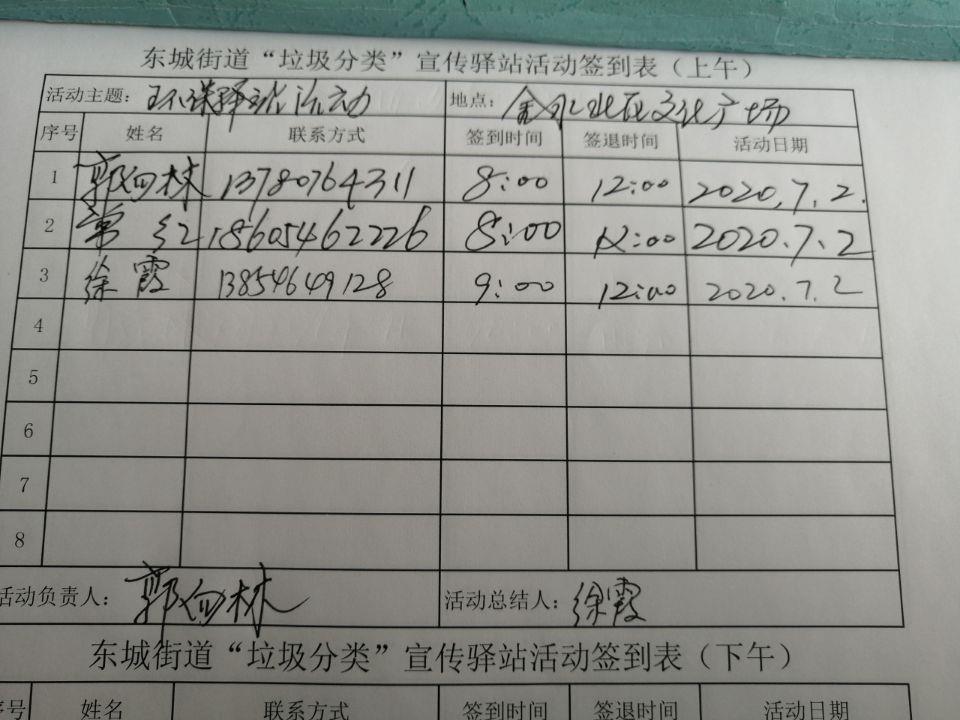 东城街道“垃圾分类”宣传驿站活动签到表（上午）
活动主题：环保驿站活动 地点：金水社区文化广场
序号 姓名 联系方式 签到时间 签退时间 活动日期
1 郭向林 13780764311 8:00 12:00 2020.7.2.
2 常红 18605462226 8:00 12:00 2020.7.2
3 徐霞 13854649128 9:00 12:00 2020.7.2
4
5
6
7
8
活动负责人：郭向林 活动总结人：徐霞
东城街道“垃圾分类”宣传驿站活动签到表（下午）
序号 姓名 联系方式 签到时间 签退时间 活动日期